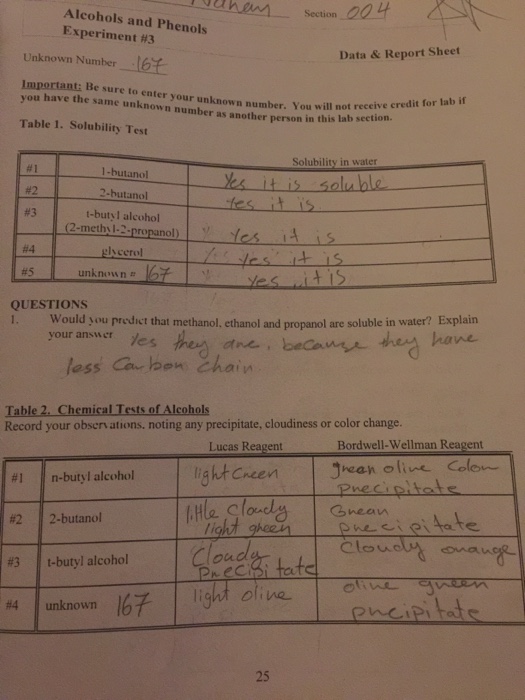 Alcohols and Phenols
Section 004
Experiment #3
Unknown Number 167
Data & Report Sheet
Important: Be sure to enter your unknown number. You will not receive credit for lab if
you have the same unknown number as another person in this lab section.
Table 1. Solubility Test
Solubility in water
#1 1-butanol Yes it is soluble
#2 2-butanol Yes it is
#3 t-butyl alcohol
(2-methyl-2-propanol) Yes it is
#4 glycerol Yes it is
#5 unknown # 167 Yes it is
QUESTIONS
1. Would you predict that methanol, ethanol and propanol are soluble in water? Explain
your answer Yes they are, because they have
less Carbon chain
Table 2. Chemical Tests of Alcohols
Record your observations, noting any precipitate, cloudiness or color change.
Lucas Reagent Bordwell-Wellman Reagent
#1 n-butyl alcohol light Green green olive Color
Precipitate
#2 2-butanol little Cloudy Green
light green precipitate
#3 t-butyl alcohol Cloudy Cloudy orange
Precipitate
#4 unknown 167 light olive olive green
precipitate
25